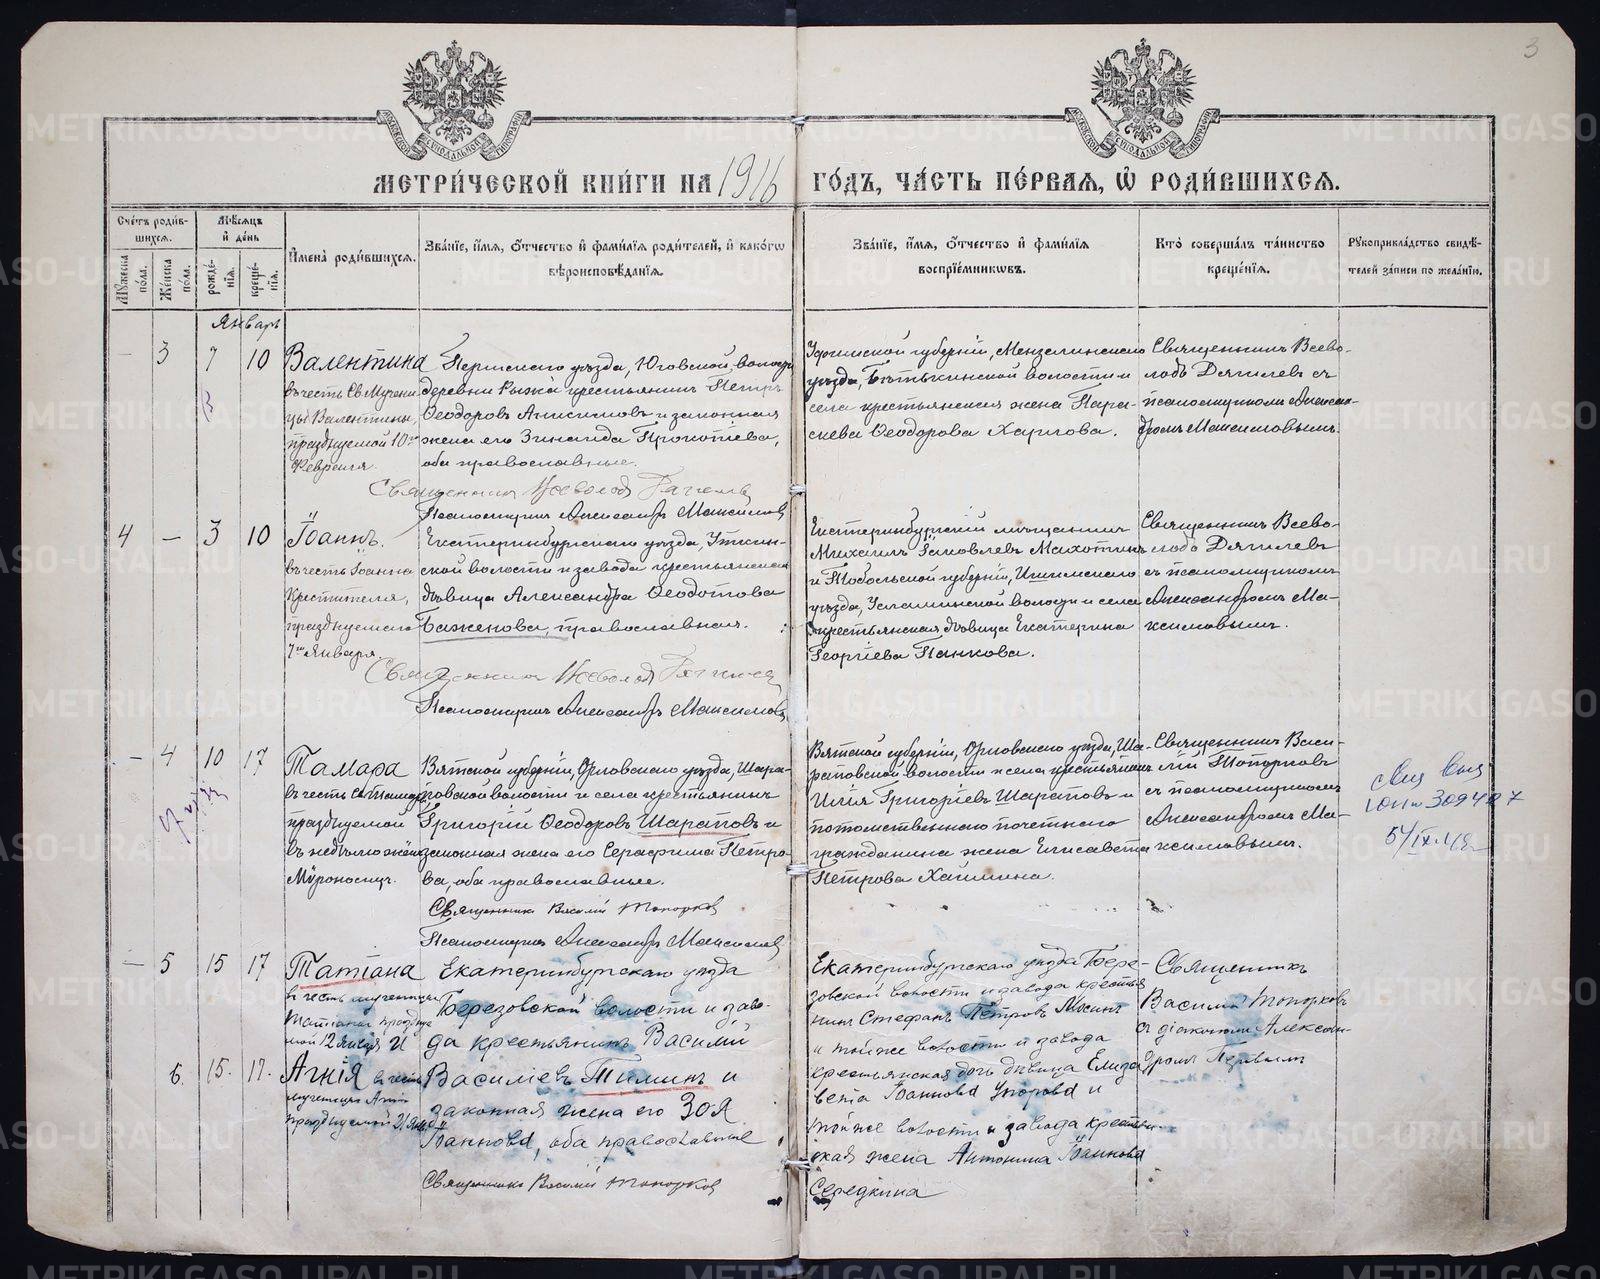 3
МЕТРИ́ЧЕСКОЙ КНИ́ГИ НА 1916 ГО́ДЪ, ЧА́СТЬ ПЕ́РВАЯ, Ѡ РОДИ́ВШИХСЯ.
Сче́тъ роди́в-
шихся.
Му́жеска по́ла.
Же́нска по́ла.
Мѣ́сяцъ
и҆ де́нь
рожде́-
нїя.
креще́-
нїя.
И҆мена̀ роди́вшихся.
Зва́нїе, и҆́мя, ѻ҆́тчество и҆ фами́лїя роди́телей, и҆ како́гѡ
вѣроисповѣ́данїя.
Зва́нїе, и҆́мя, ѻ҆́тчество и҆ фами́лїя
воспрїе́мникѡвъ.
Кто̀ соверша́лъ та́инство
креще́нїя.
Рꙋкоприкла́дство свидѣ́-
телей за́писи по жела́нїю.
Январь
- 3 7 10 Валентина
въ честь Св. Мучени-
цы Валентины,
празднуемой 10го
Февраля.
Пермскаго уѣзда, Юговской волости
деревни крестьянинъ Петръ
Ѳеодоровъ Анисимовъ и законная
жена его Зинаида Прокопіева,
оба православные.
Священникъ Всеволодъ
Псаломщикъ Александръ Максимовъ
Уфимской губерніи, Мензелинскаго
уѣзда, волости и
села крестьянская жена Пара-
скева Ѳеодорова Харлова.
Священникъ Всево-
лодъ съ
псаломщикомъ Алексан-
дромъ Максимовымъ.
4 - 3 10 Іоаннъ.
въ честь Іоанна
Крестителя,
празднуемаго
7го Января.
Екатеринбургскаго уѣзда, Уткин-
ской волости и завода крестьянская
дѣвица Александра Ѳеодотова
Баженова, православная.
Священникъ Всеволодъ
Псаломщикъ Александръ Максимовъ
Екатеринбургскій мѣщанинъ
Михаилъ Іаковлевъ Махоткинъ
и Тобольской губерніи, Ишимскаго
уѣзда, волости и села
крестьянская дѣвица Екатерина
Георгіева Панкова.
Священникъ Всево-
лодъ
съ псаломщикомъ
Александромъ Ма-
ксимовымъ.
- 4 10 17 Тамара
въ честь Св. Тамары,
празднуемой
въ недѣлю женъ
Мѵроносицъ.
Вятской губерніи, Орловскаго уѣзда, Шара-
повской волости и села крестьянинъ
Григорій Ѳеодоровъ Шараповъ и
законная жена его Серафима Петро-
ва, оба православные.
Священникъ Василій Топорковъ
Псаломщикъ Александръ Максимовъ
Вятской губерніи, Орловскаго уѣзда, Ша-
раповской волости и села крестьянинъ
Илія Григоріевъ Шараповъ и
потомственнаго почетнаго
гражданина жена Елисавета
Петрова
Священникъ Васи-
лій Топорковъ
съ псаломщикомъ
Александромъ Ма-
ксимовымъ.
- 5 15 17 Татіана
въ честь мученицы
Татіаны праздну-
мой 12 Января и
6. 15. 17. Агнія въ честь
мученицы Агніи
празднуемой 21 Янв.
Екатеринбургскаго уѣзда
Березовской волости и заво-
да крестьянинъ Василій
Василіевъ Тиминъ и
законная жена его Зоя
Іоаннова, оба православные
Священникъ Василій Топорковъ
Екатеринбургскаго уѣзда Бере-
зовской волости и завода крестья-
нинъ Стефанъ Петровъ
и той же волости и завода
крестьянская дочь дѣвица Елиза-
вета Іоаннова Упорова и
той же волости и завода крестьян-
ская жена Антонина Іоаннова
Середкина
Священникъ
Василій Топорковъ
съ діакономъ Алексан-
дромъ